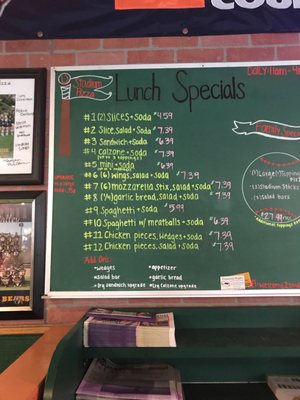 COU
DAILY-11am-4
Stadium
Pizza
Lunch Specials
#1 (2) Slices + Soda $4.59
#2 Slice, Salad + Soda $7.39
#3 Sandwich + Soda $6.39
#4 Calzone + Soda $7.39
#5 mini + Soda $6.39
#6 (6) wings, salad + Soda $7.39
#7 (6) mozzarella stix, salad + soda $7.39
#8 (14) garlic bread, salad + soda $7.39
#9 Spaghetti + soda $5.99
#10 Spaghetti w/ meatballs + Soda $6.39
#11 Chicken pieces, wedges + soda $7.39
#12 Chicken pieces, salad + soda $7.39
Add Ons:
*wedges *appetizer
*salad bar *garlic bread
*try Sandwich upgrade *try Calzone upgrade
Family Specia
1 Large
1 Stadium Sticks
1 salad bar
BEARS